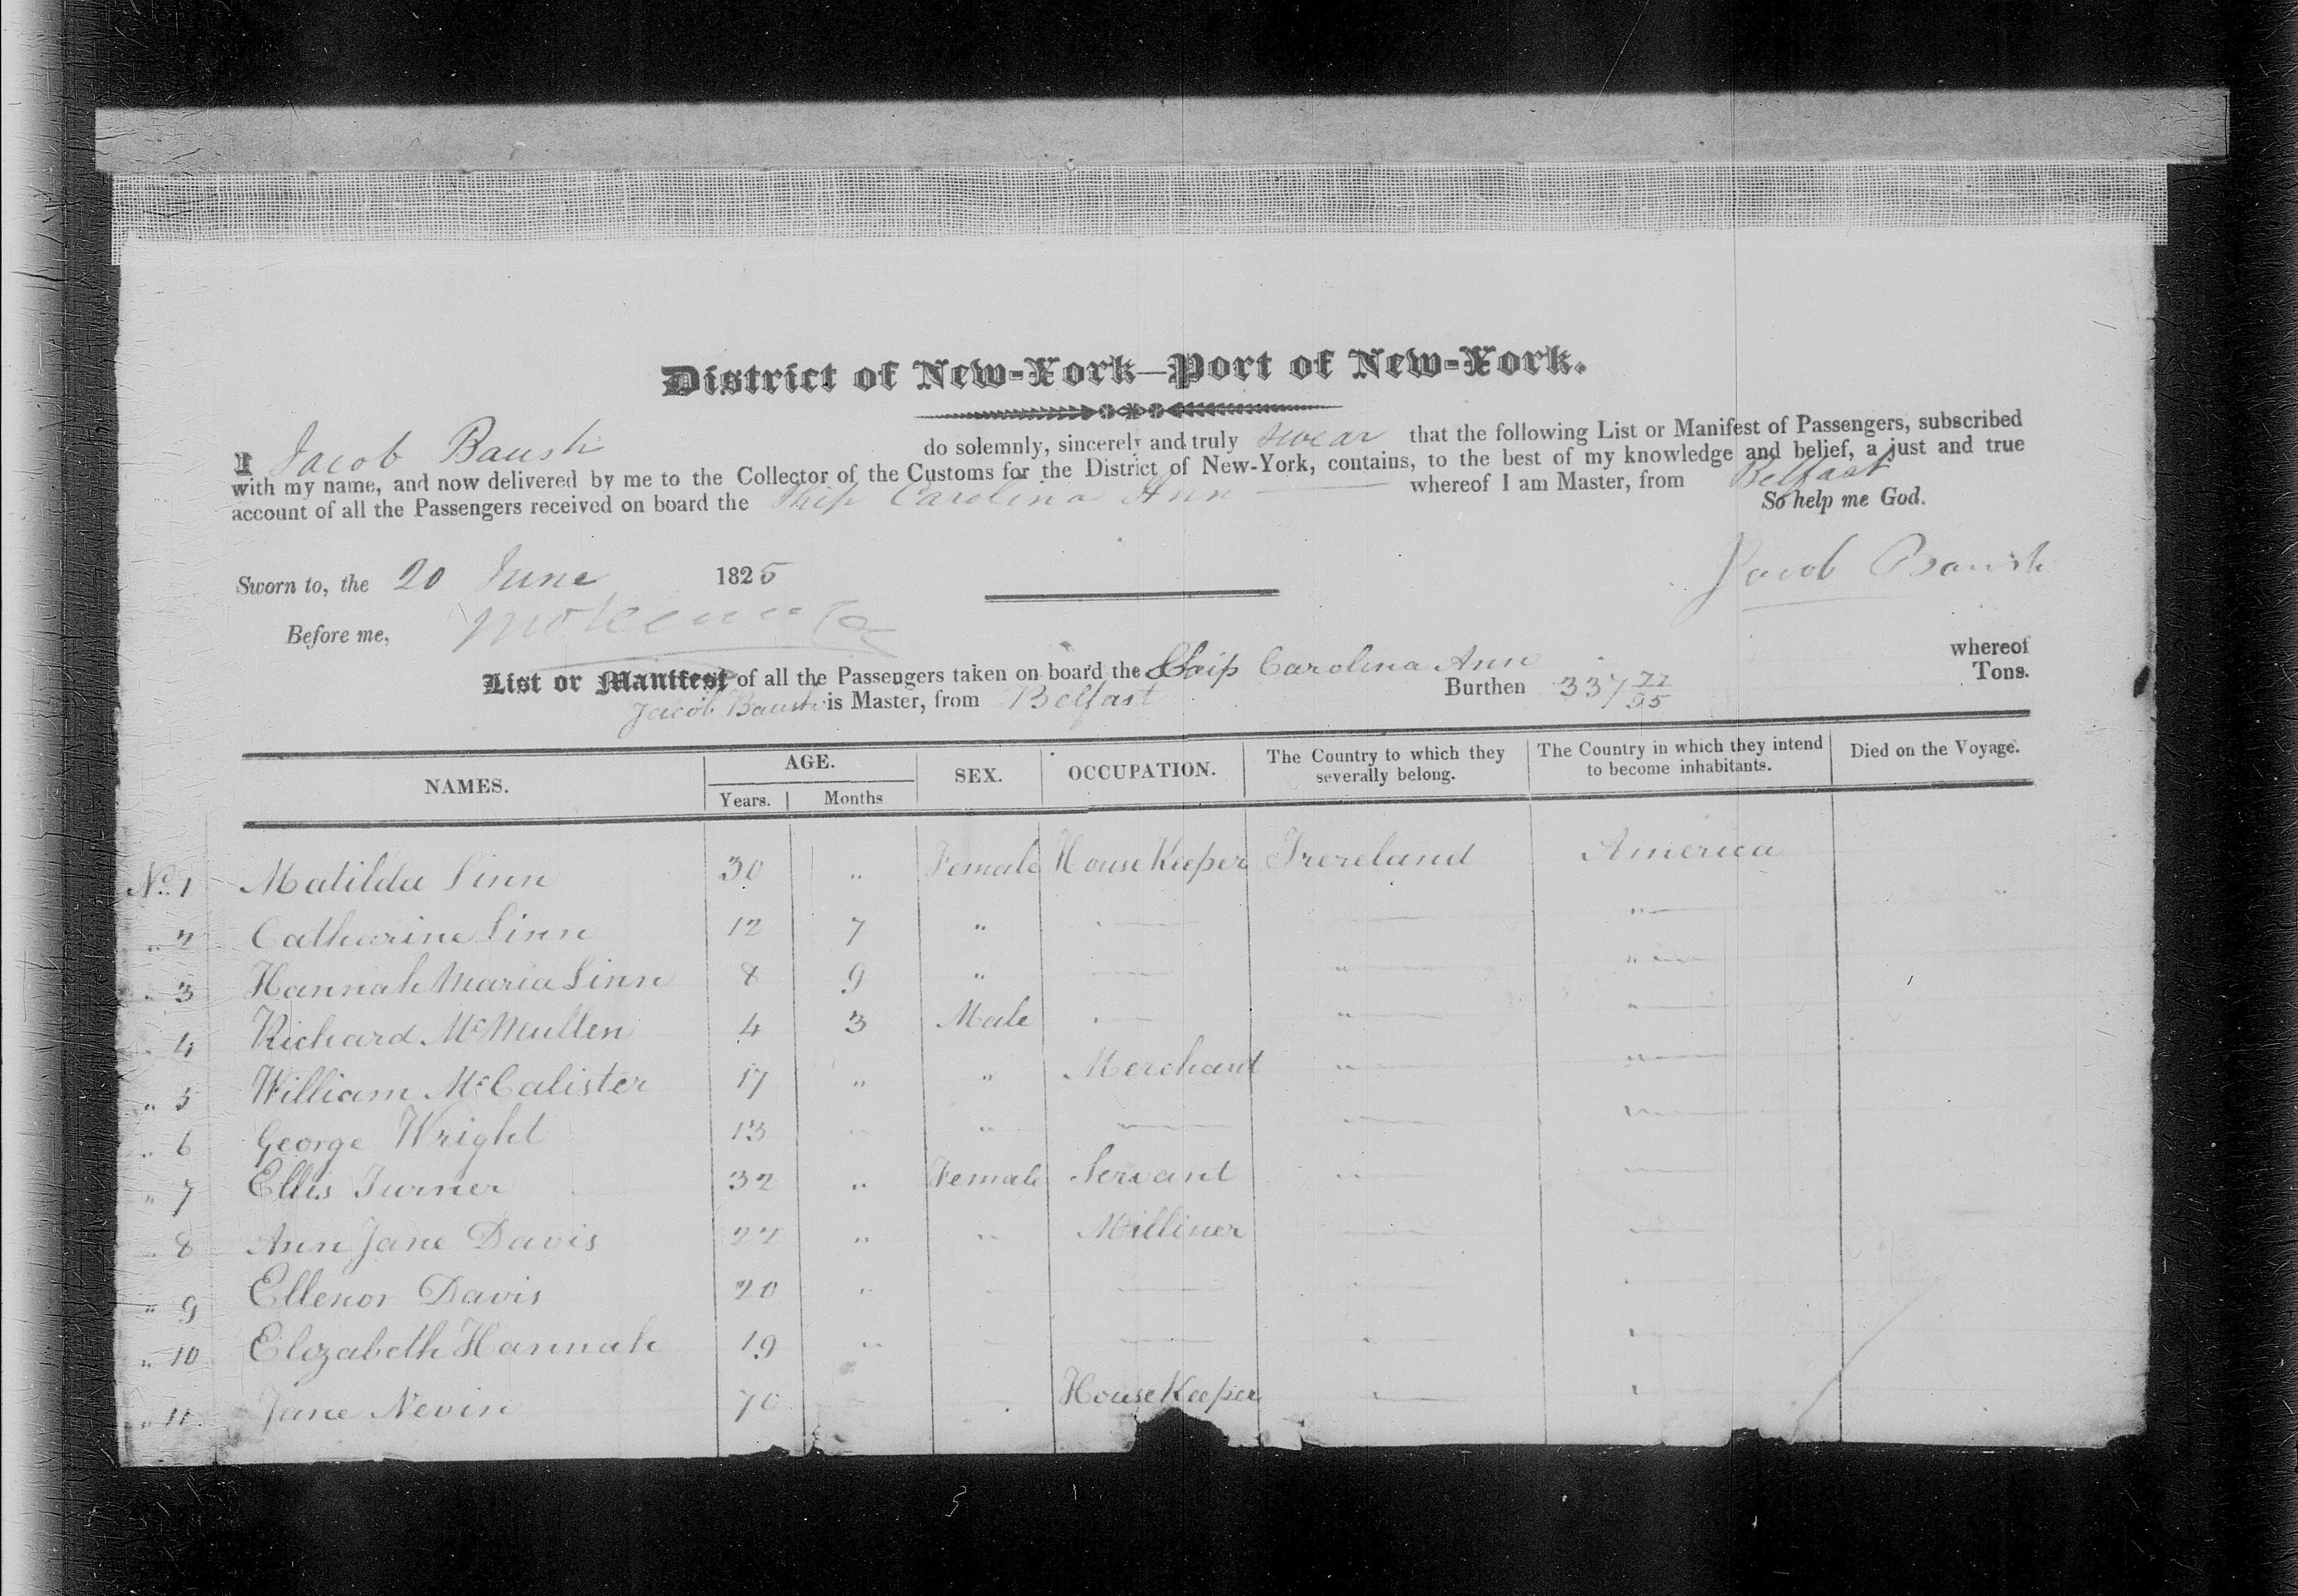 District of New-York—Port of New-York.
I Jacob Baush do solemnly, sincerely and truly swear that the following List or Manifest of Passengers, subscribed
with my name, and now delivered by me to the Collector of the Customs for the District of New-York, contains, to the best of my knowledge and belief, a just and true
account of all the Passengers received on board the Ship Carolina Ann whereof I am Master, from Belfast
So help me God.
Sworn to, the 20 June 1825
Jacob Baush
Before me,
List or Manifest of all the Passengers taken on board the Ship Carolina Ann whereof
Jacob Baush is Master, from Belfast Burthen 337 77/95 Tons.
NAMES. AGE. SEX. OCCUPATION. The Country to which they severally belong. The Country in which they intend to become inhabitants. Died on the Voyage.
Years. Months
No 1 Matilda Linn 30 " Female House Keeper Irereland America
" 2 Catharine Linn 12 7 " — — " —
" 3 Hannah Maria Linn 8 9 " — " — " —
" 4 Richard McMullen 4 3 Male — " — " —
" 5 William McCalister 17 " " Merchant " — " —
" 6 George Wright 13 " " — — " —
" 7 Ellis Turner 32 " Female Servant " — —
" 8 Ann Jane Davis 22 " " Milliner — —
" 9 Ellenor Davis 20 " " — " — "
" 10 Elizabeth Hannah 19 " — — " — "
" 11 Jane Nevin 70 House Keeper " — "